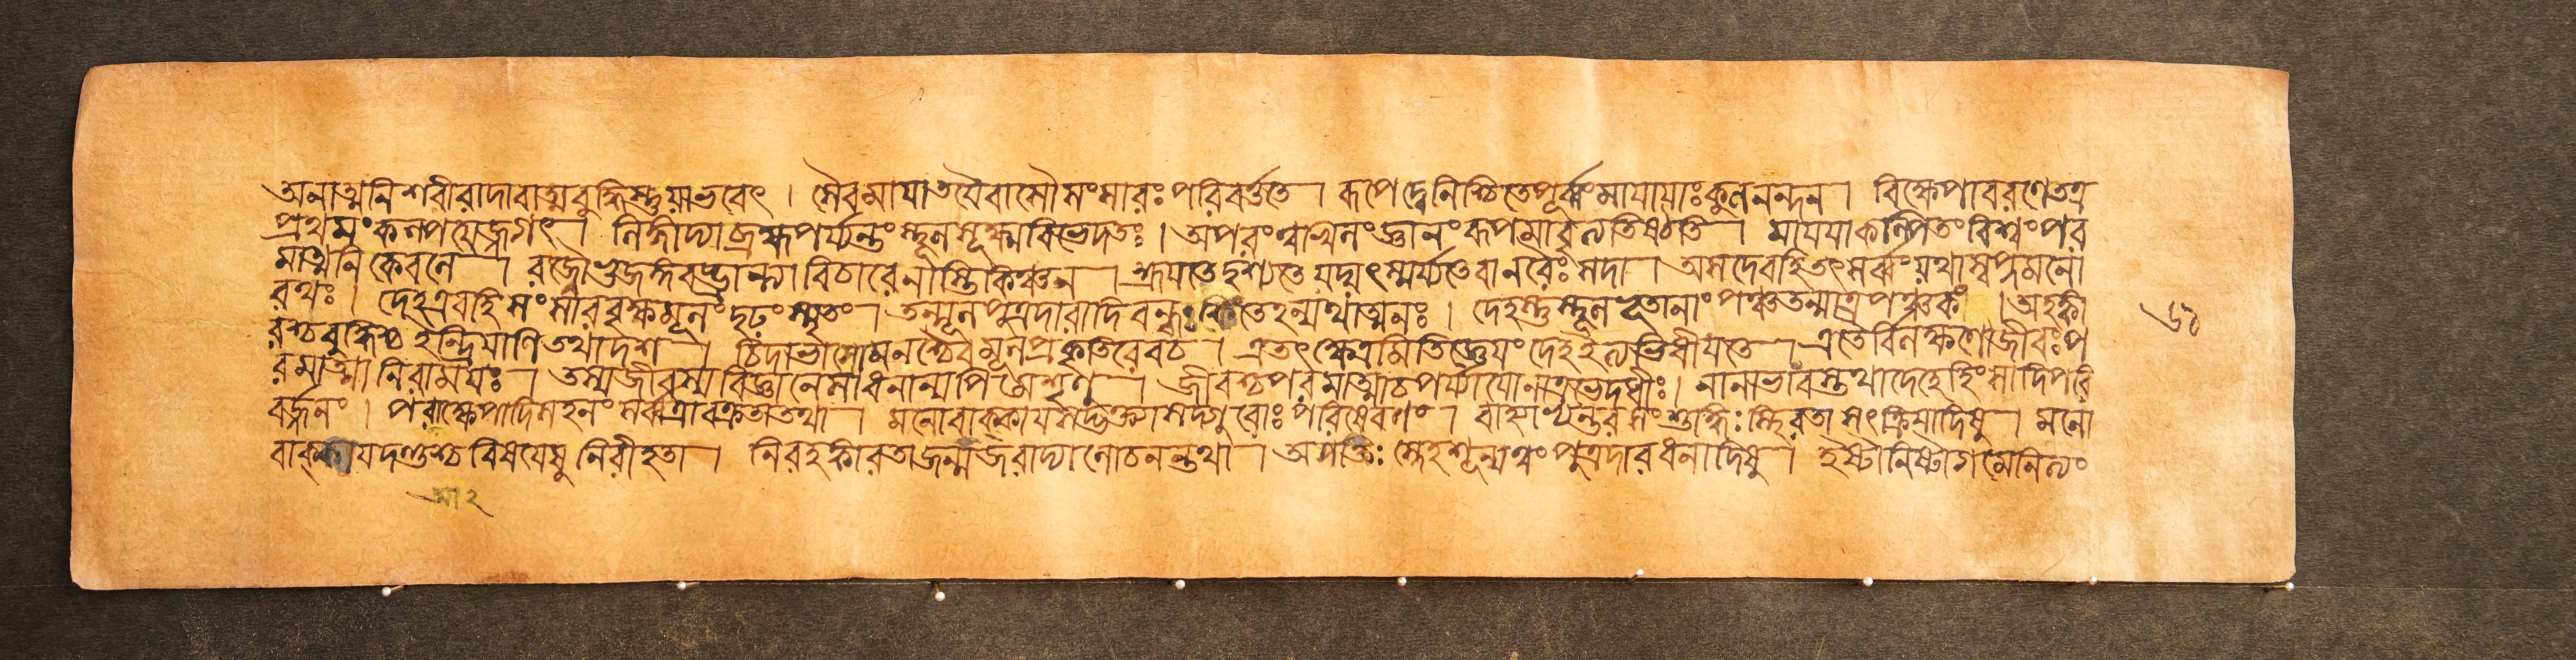 অনাত্মনিশরীরাদাবাত্মবুদ্ধিস্তুয়াভবেৎ। সৈবমায়াতয়ৈবাসৌসংসারঃপরিবর্ত্ততে। রূপেদ্বেনিশ্চিতেপূর্ব্বংমায়ায়াঃকুলনন্দন। বিক্ষেপাবরণেতত্র
প্রথমংকল্পয়েজ্জগৎ। লিঙ্গাদ্যাব্রহ্মপর্য্যন্তংস্থূলসূক্ষ্মবিভেদতঃ। অপরংত্বাখিলংজ্ঞানংরূপমাবৃত্যতিষ্ঠতি। মায়য়াকল্পিতংবিশ্বংপর
মাত্মনিকেবলে। রজ্জৌভুজঙ্গবদ্ভ্রান্ত্যাবিচারেনাস্তিকিঞ্চন। শ্রূয়তেদৃশ্যতেয়দ্যৎস্মর্য্যতেবানরৈঃসদা। অসদেবহিতৎসর্ব্বংয়থাস্বপ্নমনো
রথঃ। দেহএবহিসংসারবৃক্ষমূলংদৃঢ়ংস্মৃতং। তন্মূলপুত্রদারাদিবন্ধঃকিংতেহন্যথাত্মনঃ। দেহস্তুস্থূলভূতানাংপঞ্চতন্মাত্রপঞ্চকং।অহঙ্কা
রশ্চবুদ্ধিশ্চইন্দ্রিয়াণিতথাদশ। চিদাভাসোমনশ্চৈবমূলপ্রকৃতিরেবচ। এতৎক্ষেত্রমিতিজ্ঞেয়ংদেহইত্যভিধীয়তে। এতৈর্বিলক্ষণোজীবঃপ
রমাত্মানিরাময়ঃ। তস্যজীবস্যবিজ্ঞানেসাধনান্যপিমেশৃণু। জীবশ্চপরমাত্মাচপর্য্যায়োনাত্রভেদধীঃ। মানাভাবস্তথাদেহেহিংসাদিপরি
বর্জ্জনং। পরাক্ষেপাদিসহনংসর্ব্বত্রাবক্রতাতথা। মনোবাক্কায়সদ্ভক্ত্যাসদ্গুরোঃপরিষেবণং। বাহ্যাভ্যন্তরসংশুদ্ধিঃস্থিরতাসৎক্রিয়াদিষু। মনো
বাক্কায়দণ্ডশ্চবিষয়েষুনিরীহতা। নিরহঙ্কারতাজন্মজরাদ্যালোচনন্তথা। অসক্তিঃস্নেহশূন্যত্বংপুত্রদারধনাদিষু। ইষ্টানিষ্টাগমেনিত্যং